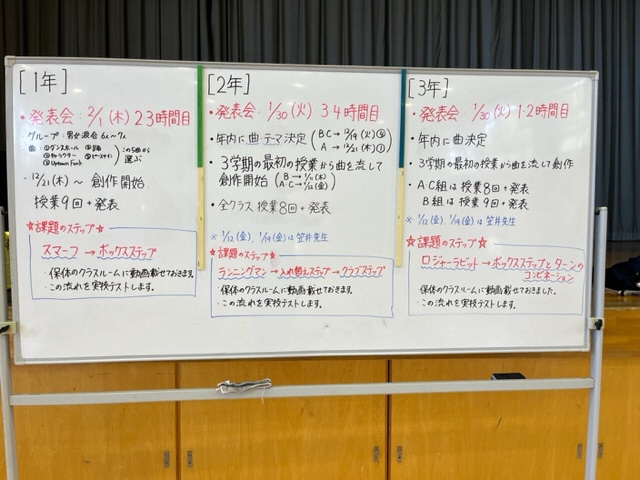 [1年]
・発表会：2/1(木) 2.3時間目
グループ：男女混合 6人〜7人
曲：①ダンスホール
②キャラクター
③Uptown Funk
この5曲から選ぶ
・12/21(木)〜 創作開始
授業9回+発表
☆課題のステップ☆
スマーフ→ボックスステップ
・保体のクラスルームに動画載せておきます。
・この流れを実技テストします。
[2年]
・発表会：1/30(火) 3.4時間目
・年内に曲・テーマ決定 (BC→12/19(火)
A→12/21(木)
・3学期の最初の授業から曲を流して
創作開始 (B→1/11(木)
A・C→1/12(金))
・全クラス 授業8回+発表
※1/12(金)、1/19(金)は笠井先生
☆課題のステップ☆
ランニングマン→入れ替えステップ→クラブステップ
・保体のクラスルームに動画載せておきます。
・この流れを実技テストします。
[3年]
・発表会：1/30(火) 1.2時間目
・年内に曲決定
・3学期の最初の授業から曲を流して創作
・AC組は授業8回+発表
B組は授業9回+発表
※1/12(金)、1/19(金)は笠井先生
☆課題のステップ☆
ロジャーラビット→ボックスステップとターンの
コンビネーション
保体のクラスルームに動画載せておきました。
・この流れを実技テストします。